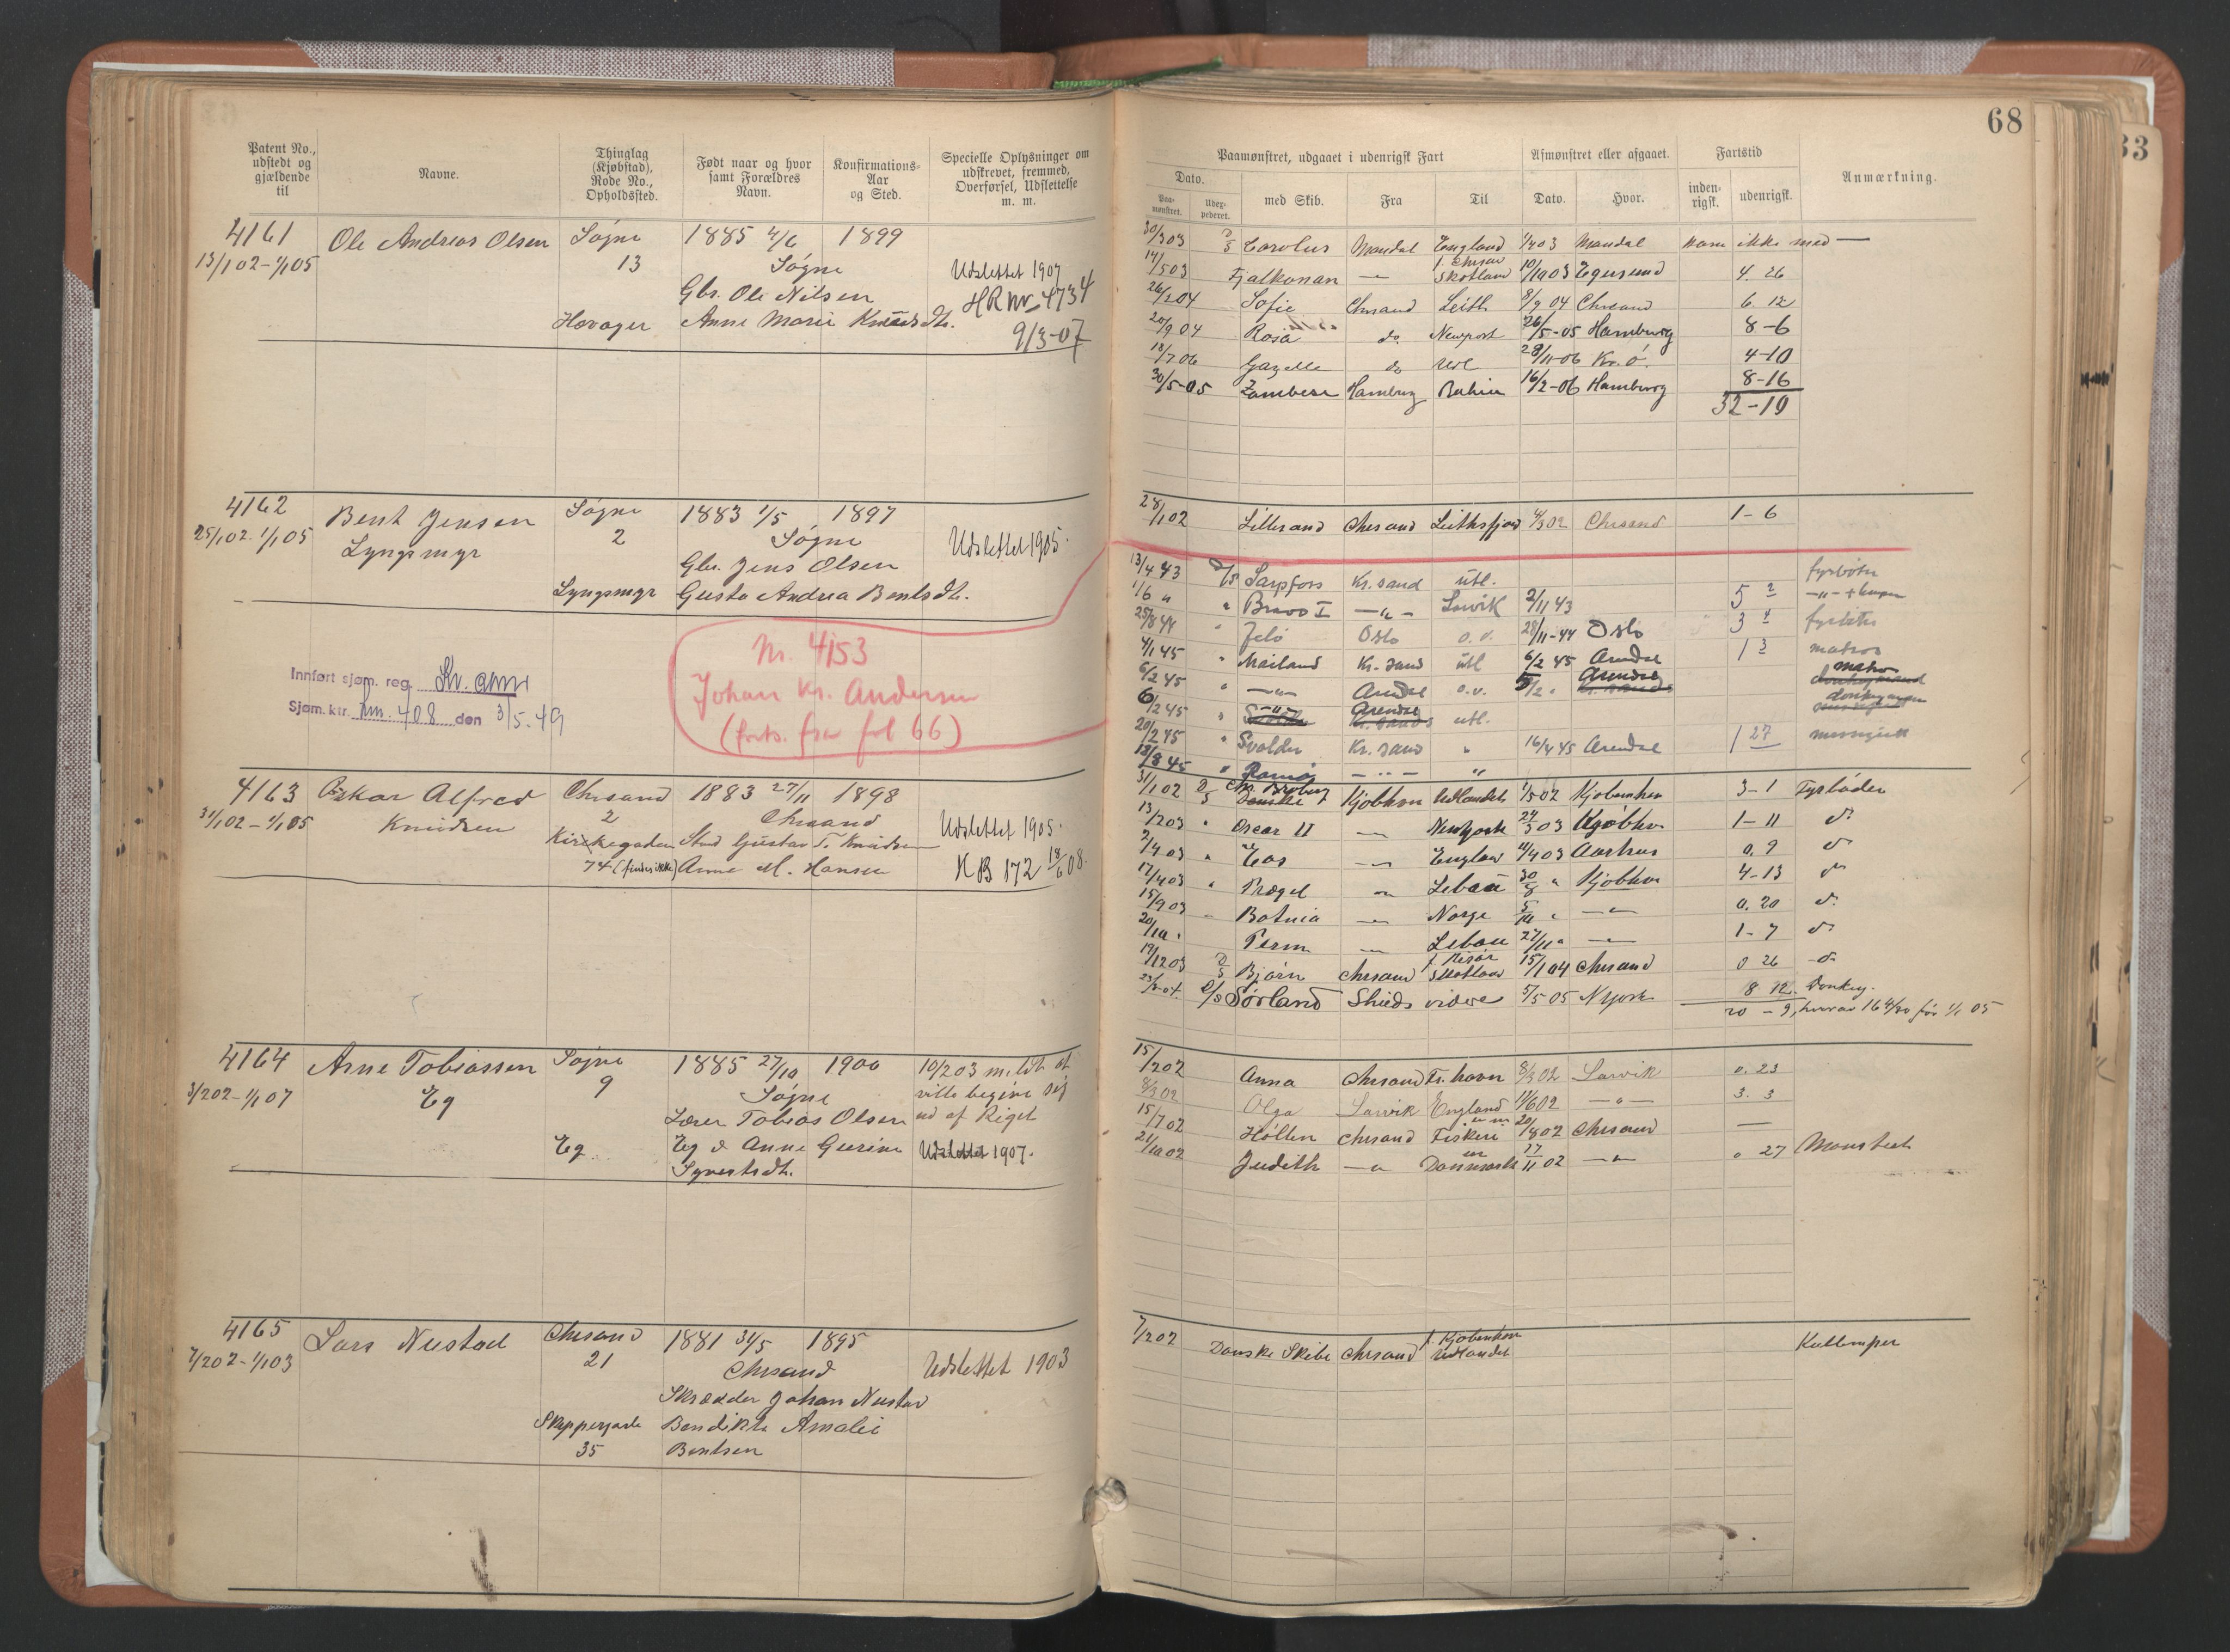 68
33
Patent No., udstedt og gjældende til
Navne.
Thinglag (Kjøbstad), Rode No., Opholdssted.
Født naar og hvor samt Forældres Navn.
Konfirmations-Aar og Sted.
Specielle Oplysninger om udskrevet, fremmed, Overførsel, Udslettelse m. m.
4161 Ole Andreas Olsen Søgne 1885 4/6 1899
13/1 02 - 1/1 05 13 Søgne Udslettet 1907
Gbr. Ole Nilsen HR Nr 4734
Hovager Anne Marie Knudsdt. 9/3-07
4162 Bent Jensen Søgne 1883 1/5 1897
25/1 02 1/1 05 Lyngsmyr 2 Søgne Udslettet 1905.
Gbr. Jens Olsen
Lyngsmyr Gusta Andrea Bentsdt.
Nr. 4153
Johan Kr. Andersen
(forts. fra fol 66)
Innført sjøm. reg. Kr.sand
Sjøm. ktr. Inn. 408 den 3/5.49
4163 Oskar Alfred Chrsand 1883 27/11 1898
31/1 02 - 1/1 05 Knudsen 2 Chrsand Udslettet 1905.
Kirkegaden Gustav T. Knudsen
74 (findes ikke) Anne M. Hansen HB 172 18/6 08.
4164 Arne Tobiassen Søgne 1885 27/10 1900 10/2 03 meldt at
3/2 02 - 1/1 07 Eg 9 Søgne ville begive sig
Lærer Tobias Olsen ud af Riget
Eg Eg & Anne Gurine Udslettet 1907.
Syvertsdt.
4165 Lars Nustad Chrsand 1881 31/5 1895
7/2 02 - 1/1 03 21 Chrsand Udslettet 1903
Skrædder Johan Nustad
Skippergade Bendikte Amalie
35 Bentsen
Paamønstret, udgaaet i udenrigsk Fart
Afmønstret eller afgaaet.
Fartstid
Anmærkning.
Dato.
Paa-mønstret.
Udex-pederet.
med Skib.
Fra
Til
Dato.
Hvor.
inden-rigsk.
udenrigsk.
30/3 03 D/S Carolus Mandal England 1/4 03 Mandal kom ikke med
14/5 03 Fjalkonan — f. Chrsan Skotland 10/10 03 Egersund 4. 26
26/2 04 Sofie Chrsand Leith 8/9 04 Chrsand 6. 12
20/9 04 Rosa do. Newport 26/5-05 Hamburg 8-6
18/7 06 Gazelle do Udl 28/11-06 Kr.ø. 4-10
30/5-05 Zambese Hamburg Bahia 16/2-06 Hamburg 8-16
32-10
28/1 02 Lillesand Chrsand Leithsfjord 4/3 02 Chrsand 1-6
13/4 43 D/S Sarpfoss Kr.sand utl. fyrbøter
1/6 " " Bravo I — " — Larvik 2/11 43 5 2
25/8 44 " Jelø Oslo o.v. 28/11-44 Oslo 3 4 fyrbøter
4/1 45 " Mailand Kr.sand utl 6/2 45 Arendal 1 3 matros
6/2 45 " — " — Arendal o.v. Arendal matros
6/2 45 " — " — Arendal utl.
20/2 45 " Svolder Kr.sand " 16/4 45 Arendal 1 27
18/8 45 " Ramø — " — "
31/1 02 D/S Chr. Broberg Danske Kjøbhvn Udlandet 1/5 02 Kjøbenhvn 3-1 Fyrbøder
13/2 03 " Oscar II — Newyork 24/3 03 Kjøbhv 1-11 do
2/4 03 " Eos — England 11/4 03 Aarhus 0. 9 do
17/4 03 " Prægel — Lebau 30/8 " Kjøbhv 4-13 do
15/9 03 Botnia — Norge 5/10 " — 0. 20 do
20/10 " Perm — Lebau 27/11 " — 1-7 do
19/12 03 D/S Bjørn Chrsand f. Risør Skotland 15/1 04 Chrsand 0 26 do
D/S Sørland Shields videre 5/5 05 N.York 8 12. Donkey.
20 - 9, hvorav 16 4/30 før 1/1 05
15/2 02 Anna Chrsand Fr.havn 8/3 02 Larvik 0. 23
8/3 02 Olga Larvik England 11/6 02 — " — 3. 3
15/7 02 Høllen Chrsand Fiskeri 20/8 02 Chrsand —
21/10 02 Judith — " Danmark 17/11 02 — " — 0 27
7/2 02 Danske Skibe Chrsand f. Kjøbenhvn Udlandet Kullemper